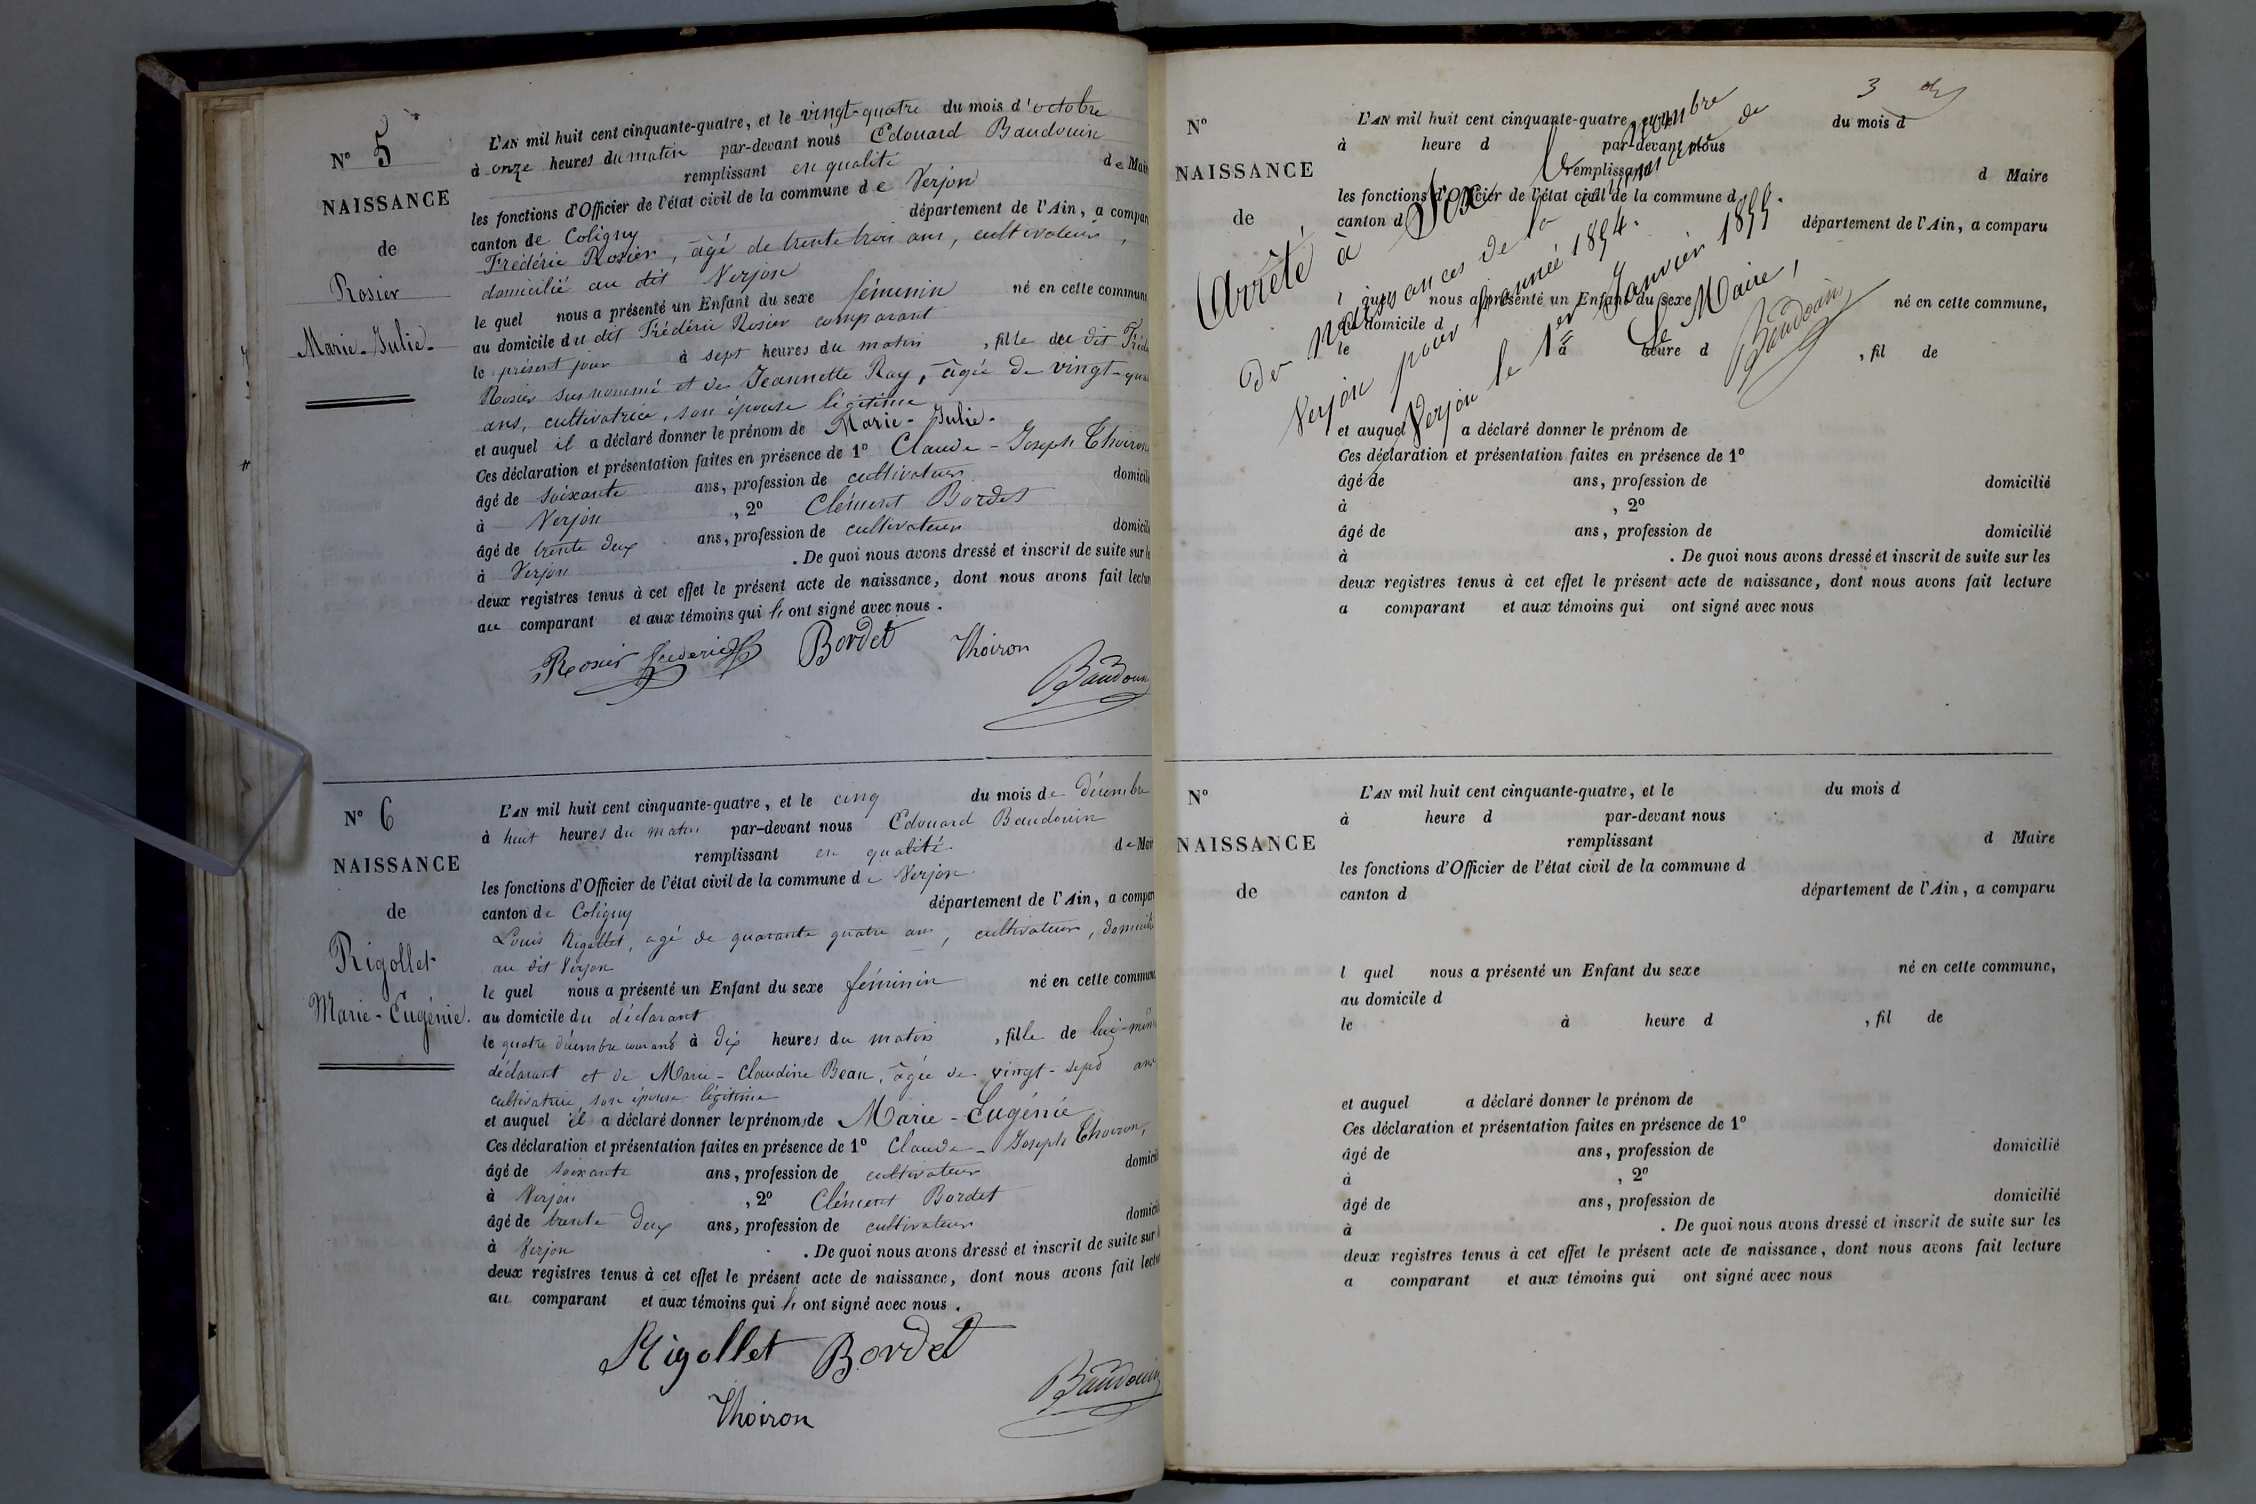 N° 5
NAISSANCE
de
Rosier
Marie-Julie.
L'AN mil huit cent cinquante-quatre, et le vingt-quatre du mois d'octobre
à onze heures du matin par-devant nous Edouard Baudouin
remplissant en qualité de Mair
les fonctions d'Officier de l'état civil de la commune de Verjon
canton de Coligny département de l'Ain, a compar
Frédéric Rosier, âgé de trente trois ans, cultivateur,
domicilié au dit Verjon
le quel nous a présenté un Enfant du sexe féminin né en cette commune
au domicile du dit Frédéric Rosier comparant
le présent jour à sept heures du matin, fille du dit Frédé
Rosier susnommé et de Jeannette Ray, âgée de vingt-qua
ans, cultivatrice, son épouse légitime
et auquel il a déclaré donner le prénom de Marie-Julie.
Ces déclaration et présentation faites en présence de 1° Claude-Joseph Thoiron
âgé de soixante ans, profession de cultivateur domicili
à Verjon, 2° Clément Bordet
âgé de trente deux ans, profession de cultivateur domicili
à Verjon. De quoi nous avons dressé et inscrit de suite sur le
deux registres tenus à cet effet le présent acte de naissance, dont nous avons fait lectur
au comparant et aux témoins qui l'ont signé avec nous.
Rosier frederic Bordet Thoiron
Baudouin
N° 6
NAISSANCE
de
Rigollet
Marie-Eugénie.
L'AN mil huit cent cinquante-quatre, et le cinq du mois de Décembre
à huit heures du matin par-devant nous Edouard Baudouin
remplissant en qualité de Mair
les fonctions d'Officier de l'état civil de la commune de Verjon
canton de Coligny département de l'Ain, a compar
Louis Rigollet, agé de quarante quatre ans, cultivateur, domicilié
au dit Verjon
le quel nous a présenté un Enfant du sexe féminin né en cette commune
au domicile du déclarant
le quatre décembre courant à dix heures du matin, fille de lui-même
déclarant et de Marie-Claudine Beau, âgée de vingt-sept ans
cultivatrice son épouse légitime
et auquel il a déclaré donner les prénoms de Marie-Eugénie
Ces déclaration et présentation faites en présence de 1° Claude-Joseph Thoiron,
âgé de soixante ans, profession de cultivateur domicili
à Verjon, 2° Clément Bordet
âgé de trente deux ans, profession de cultivateur domicili
à Verjon. De quoi nous avons dressé et inscrit de suite sur l
deux registres tenus à cet effet le présent acte de naissance, dont nous avons fait lectu
au comparant et aux témoins qui l'ont signé avec nous.
Rigollet Bordet
Thoiron
Baudouin
3
N°
NAISSANCE
de
L'AN mil huit cent cinquante-quatre, et le du mois d
à heure d par-devant nous
remplissant d Maire
les fonctions d'Officier de l'état civil de la commune d
canton d département de l'Ain, a comparu
l quel nous a présenté un Enfant du sexe né en cette commune,
au domicile d
le à heure d, fil de
et auquel a déclaré donner le prénom de
Ces déclaration et présentation faites en présence de 1°
âgé de ans, profession de domicilié
à, 2°
âgé de ans, profession de domicilié
à. De quoi nous avons dressé et inscrit de suite sur les
deux registres tenus à cet effet le présent acte de naissance, dont nous avons fait lecture
a comparant et aux témoins qui ont signé avec nous
Arrêté à Six le nombre
de naissances de la commune de
Verjon pour l'année 1854.
Verjon le 1er Janvier 1855.
Le Maire,
Baudouin
N°
NAISSANCE
de
L'AN mil huit cent cinquante-quatre, et le du mois d
à heure d par-devant nous
remplissant d Maire
les fonctions d'Officier de l'état civil de la commune d
canton d département de l'Ain, a comparu
l quel nous a présenté un Enfant du sexe né en cette commune,
au domicile d
le à heure d, fil de
et auquel a déclaré donner le prénom de
Ces déclaration et présentation faites en présence de 1°
âgé de ans, profession de domicilié
à, 2°
âgé de ans, profession de domicilié
à. De quoi nous avons dressé et inscrit de suite sur les
deux registres tenus à cet effet le présent acte de naissance, dont nous avons fait lecture
a comparant et aux témoins qui ont signé avec nous